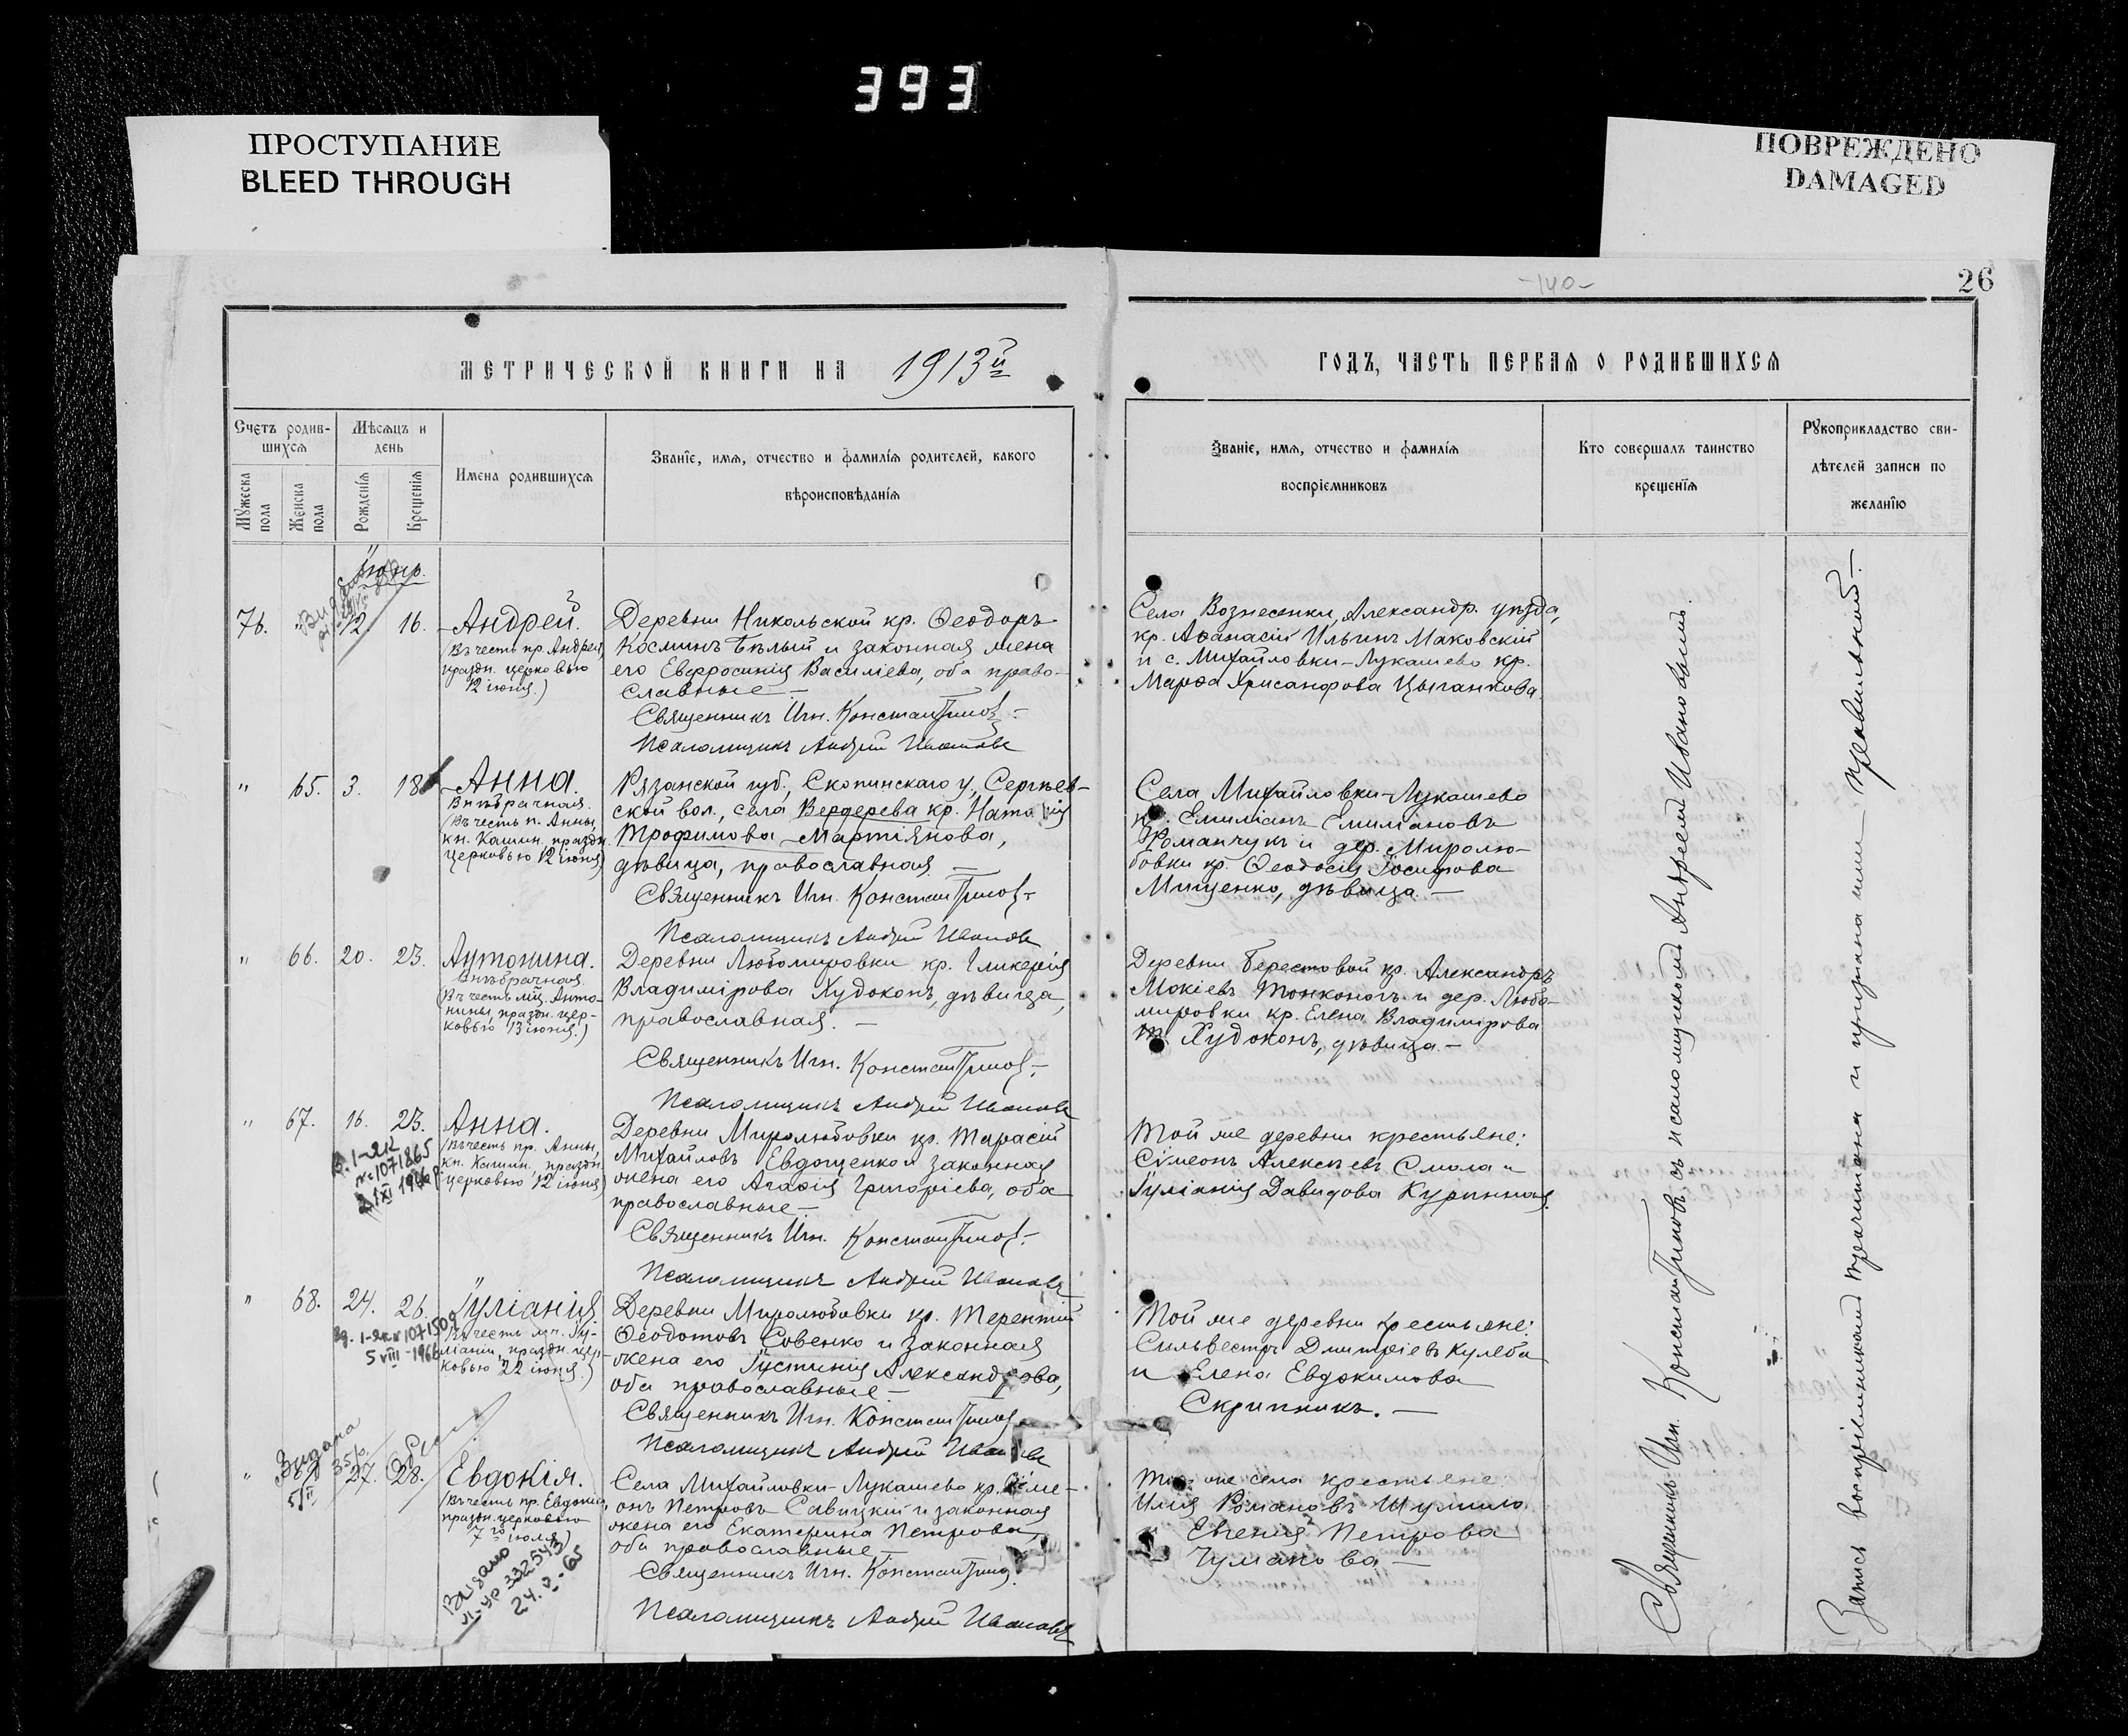 393
ПРОСТУПАНИЕ
BLEED THROUGH
ПОВРЕЖДЕНО
DAMAGED
-140-
26
МЕТРИЧЕСКОЙ КНИГИ НА 1913й
ГОДЪ, ЧАСТЬ ПЕРВАЯ О РОДИВШИХСЯ
Счетъ родив-
шихся
Мужеска
пола
Женска
пола
Мѣсяцъ и
день
Рожденія
Крещенія
Имена родившихся
Званіе, имя, отчество и фамилія родителей, какого
вѣроисповѣданія
Званіе, имя, отчество и фамилія
воспріемниковъ
Кто совершалъ таинство
крещенія
Рукоприкладство сви-
дѣтелей записи по
желанію
Іюнь.
76. " 12. 16.
Андрей.
(Въ честь пр. Андрея,
праздн. церковью
12 іюня.)
Деревни Никольской кр. Ѳеодоръ
Косминъ Бѣлый и законная жена
его Евфросинія Василіева, оба право-
славные —
Священникъ Игн. Константиновъ
Псаломщикъ Андрей Ивановъ
Села Вознесенки, Александр. уѣзда,
кр. Аѳанасій Ильинъ Маковскій
и с. Михайловки-Лукашево кр.
Марѳа Хрисанфова Цыганкова.
" 65. 3. 18
Анна.
Внѣбрачная.
(Въ честь п. Анны,
кн. Кашин. праздн.
церковью 12 іюня)
Рязанской губ., Скопинскаго у., Сергѣев-
ской вол., села Вердерева кр. Наталія
Трофимова Мартіянова,
дѣвица, православная —
Священникъ Игн. Константиновъ
Псаломщикъ Андрей Ивановъ
Села Михайловки-Лукашево
кр. Емиліанъ Емиліановъ
Романчукъ и дер. Миролю-
бовки кр. Ѳеодосія Іосифова
Мищенко, дѣвица. —
" 66. 20. 23.
Антонина.
Внѣбрачная.
(Въ честь мц. Анто-
нины, праздн. цер-
ковью 13 іюня.)
Деревни Любомировки кр. Гликерія
Владимірова Худоконь, дѣвица,
православная. —
Священникъ Игн. Константиновъ
Псаломщикъ Андрей Ивановъ
Деревни Берестовой кр. Александръ
Мокіевъ Тонконогъ и дер. Любо-
мировки кр. Елена Владимірова
Худоконь, дѣвица. —
" 67. 16. 23.
Анна.
(Въ честь пр. Анны,
кн. Кашин., праздн.
церковью 12 іюня)
1071865
Деревни Миролюбовки кр. Тарасій
Михайловъ Евдощенко и законная
жена его Агафія Григоріева, оба
православные —
Священникъ Игн. Константиновъ
Псаломщикъ Андрей Ивановъ
Той же деревни крестьяне:
Сімеонъ Алексѣевъ Смола и
Іуліанія Давидова Куринная.
" 68. 24. 26.
Іуліанія
(Въ честь мч. Іу-
ліаніи, праздн. цер-
ковью 22 іюня.)
5 VIII-1966
Деревни Миролюбовки кр. Терентій
Ѳеодотовъ Совенко и законная
жена его Іустинія Александрова,
оба православные —
Священникъ Игн. Константиновъ
Псаломщикъ Андрей Ивановъ
Той же деревни крестьяне:
Сильвестръ Дмитріевъ Кулеба
и Елена Евдокимова
Скрипникъ. —
" 27. 28.
Евдокія.
(Въ честь пр. Евдокіи,
праздн. церковью
7го іюля)
Видано
VI-УР 332543
24.V-65
Села Михайловки-Лукашево кр. Сіме-
онъ Петровъ Савицкій и законная
жена его Екатерина Петрова,
оба православные —
Священникъ Игн. Константиновъ
Псаломщикъ Андрей Ивановъ
Той же села крестьяне:
Илія Романовъ Шумило
Евгенія Петрова
Чумакова —
Священникъ Игн. Константиновъ съ псаломщикомъ Андреемъ Ивановымъ.
Запись воспріемниками прочитана и признана ими правильной.